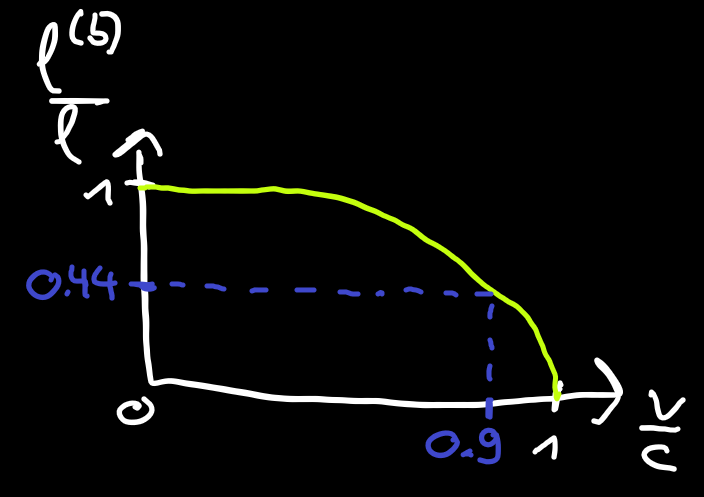 l(5)
l
1
0.44
0
0.9
1
v
c